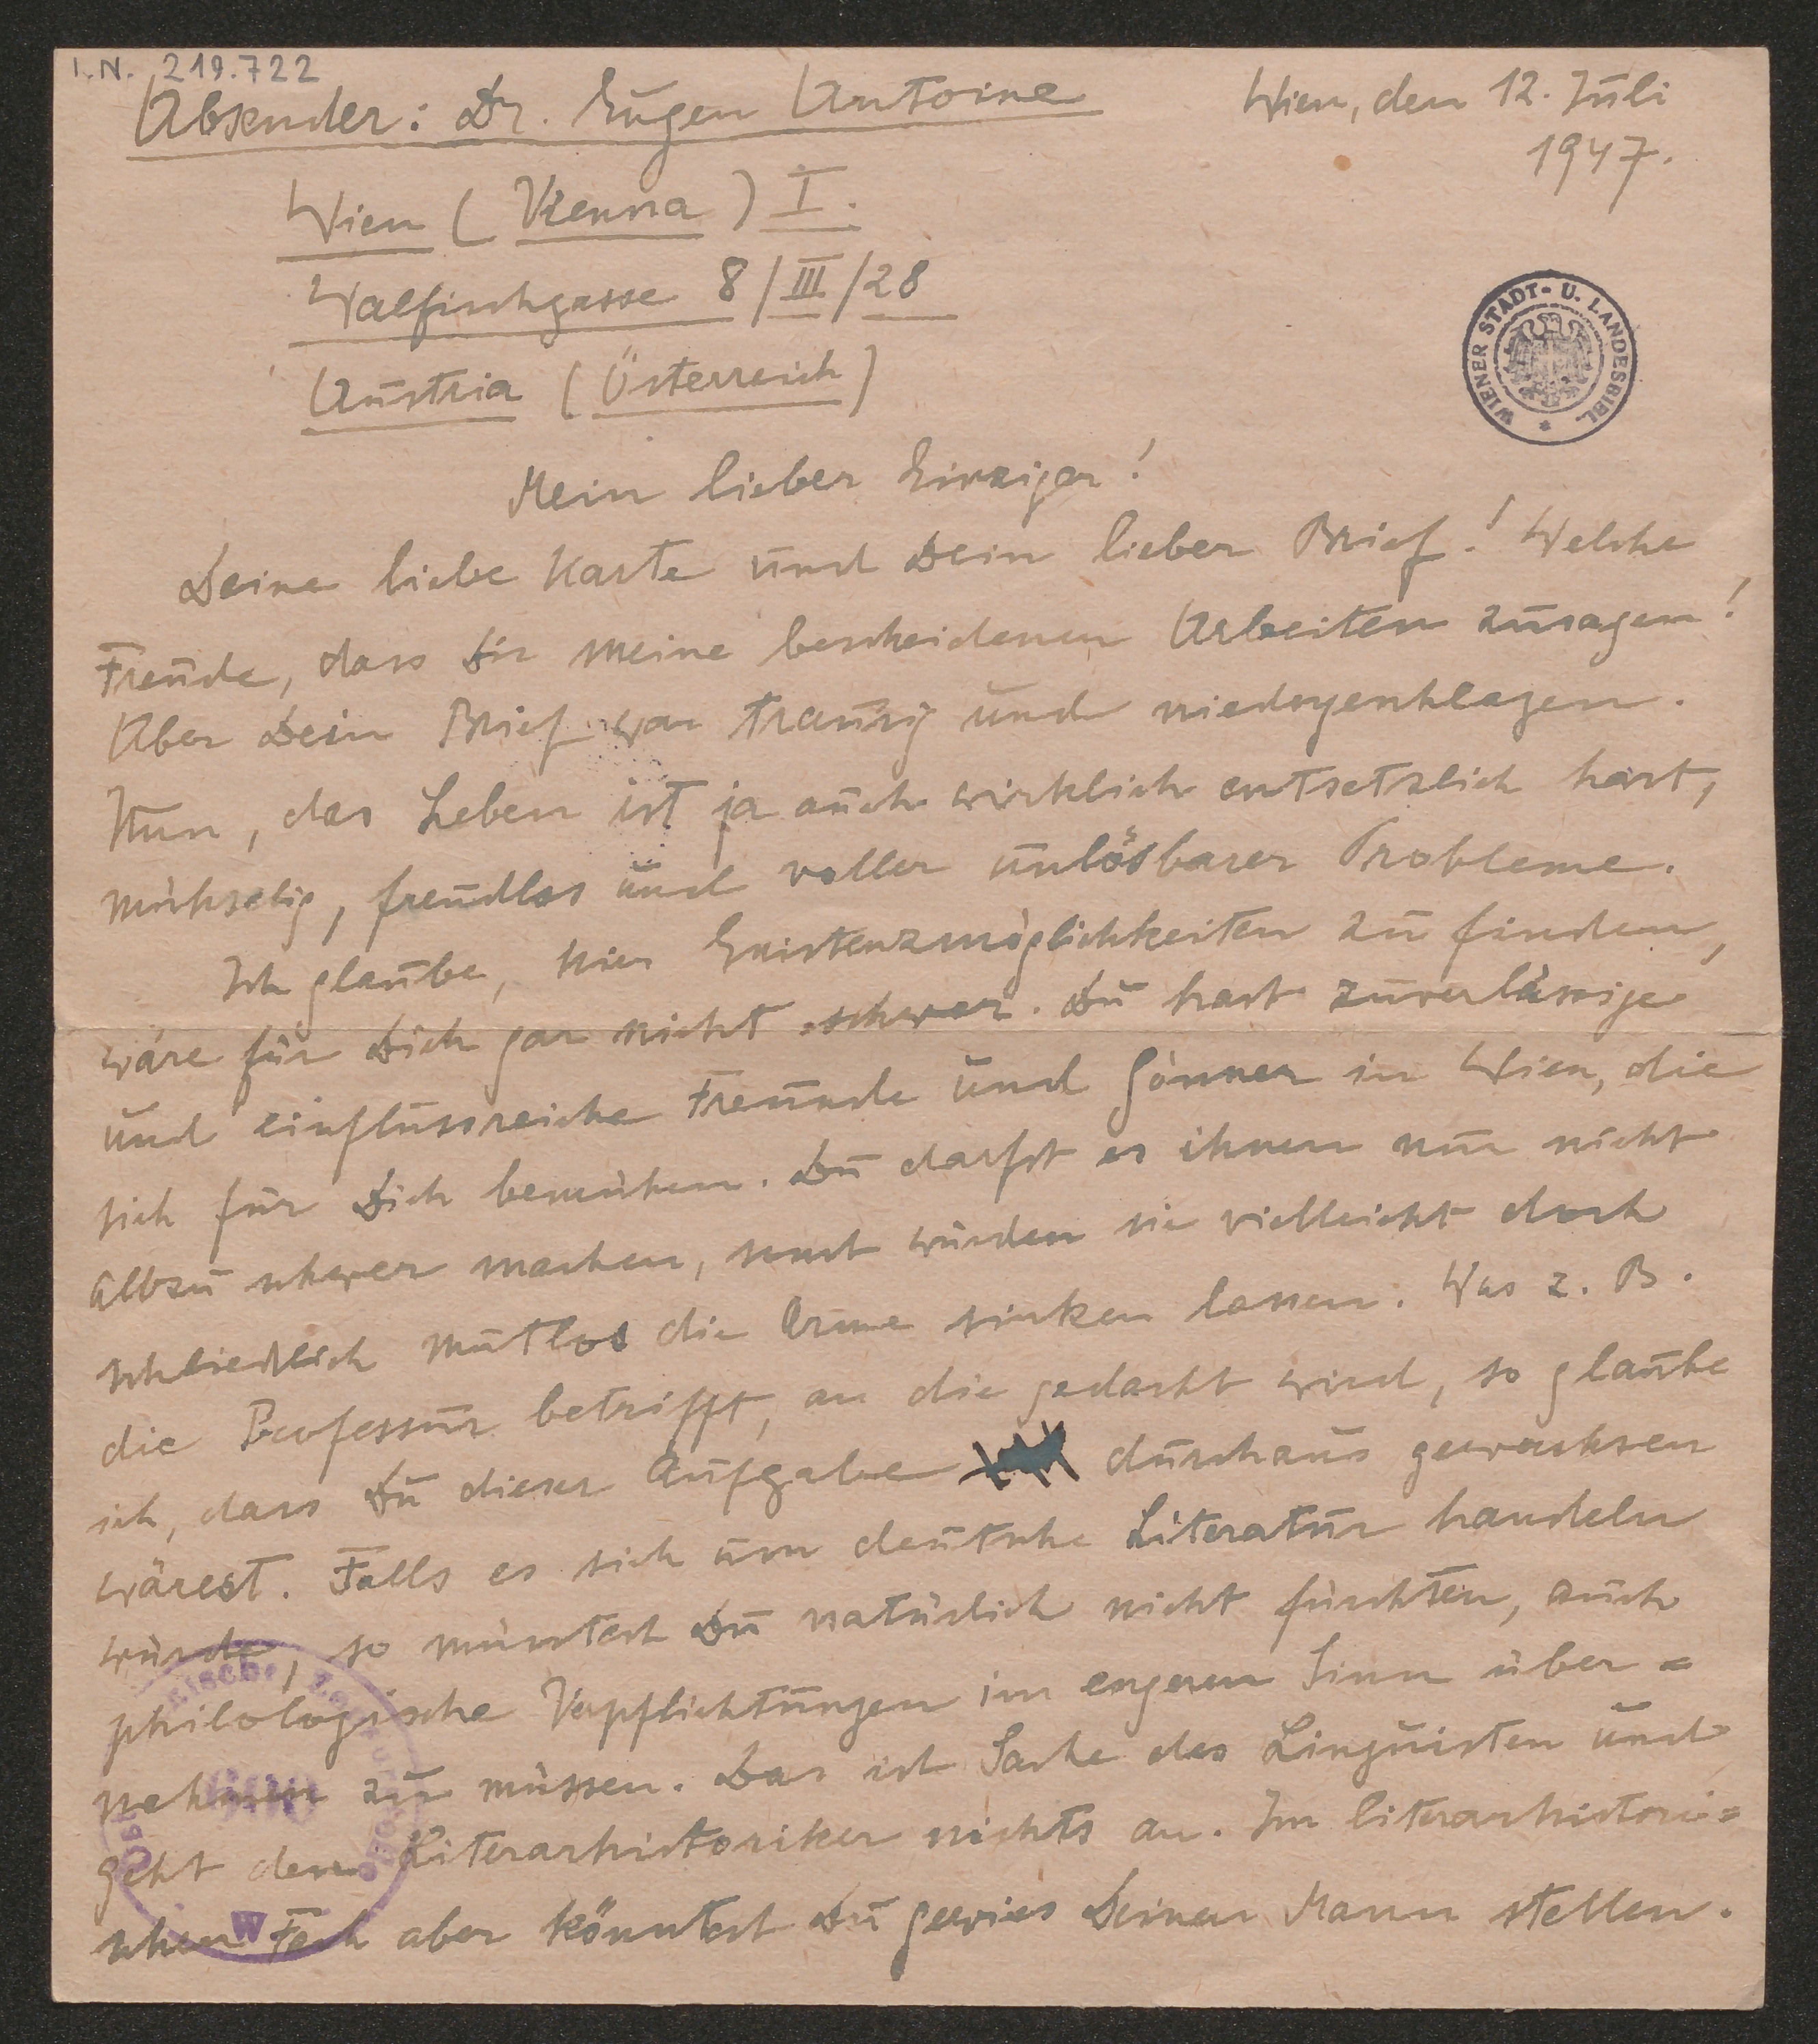 I.N. 219.722
Absender: Dr. Eugen Antoine
Wien, den 12. Juli
1947.
Wien (Vienna) I.
Walfischgasse 8/III/28
Austria (Österreich)
WIENER STADT- U. LANDESBIBL.
Mein lieber Einziger!
Deine liebe Karte und Dein lieber Brief! Welche
Freude, dass Dir meine bescheidenen Arbeiten zusagen!
Aber Dein Brief war traurig und niedergeschlagen.
Nun, das Leben ist ja auch wirklich entsetzlich hart,
mühselig, freudlos und voller unlösbarer Probleme.
Ich glaube, hier Existenzmöglichkeiten zu finden,
wäre für Dich gar nicht schwer. Du hast zuverlässige
und einflussreiche Freunde und Gönner in Wien, die
sich für Dich bemühen. Du darfst es ihnen nur nicht
allzu schwer machen, sonst würden sie vielleicht doch
schliesslich mutlos die Arme sinken lassen. Was z. B.
die Professur betrifft, an die gedacht wird, so glaube
ich, dass Du dieser Aufgabe durchaus gewachsen
wärest. Falls es sich um deutsche Literatur handeln
würde, so müsstest Du natürlich nicht fürchten, auch
philologische Verpflichtungen im engeren Sinn über=
nehmen zu müssen. Das ist Sache des Linguisten und
geht den Literarhistoriker nichts an. Im literarhistori=
schen Fach aber könntest Du gewiss Deinen Mann stellen.
W